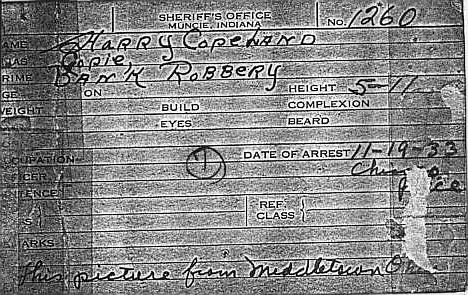 SHERIFF'S OFFICE
MUNCIE, INDIANA No. 1260
AME Harry Copeland
IAS Copie
RIME Bank Robbery
GE ON HEIGHT 5-11
WEIGHT BUILD COMPLEXION
EYES BEARD
CUPATION 1 DATE OF ARREST 11-19-33
CER
TENCE
S REF.
CLASS
ARKS
This picture from Middletown